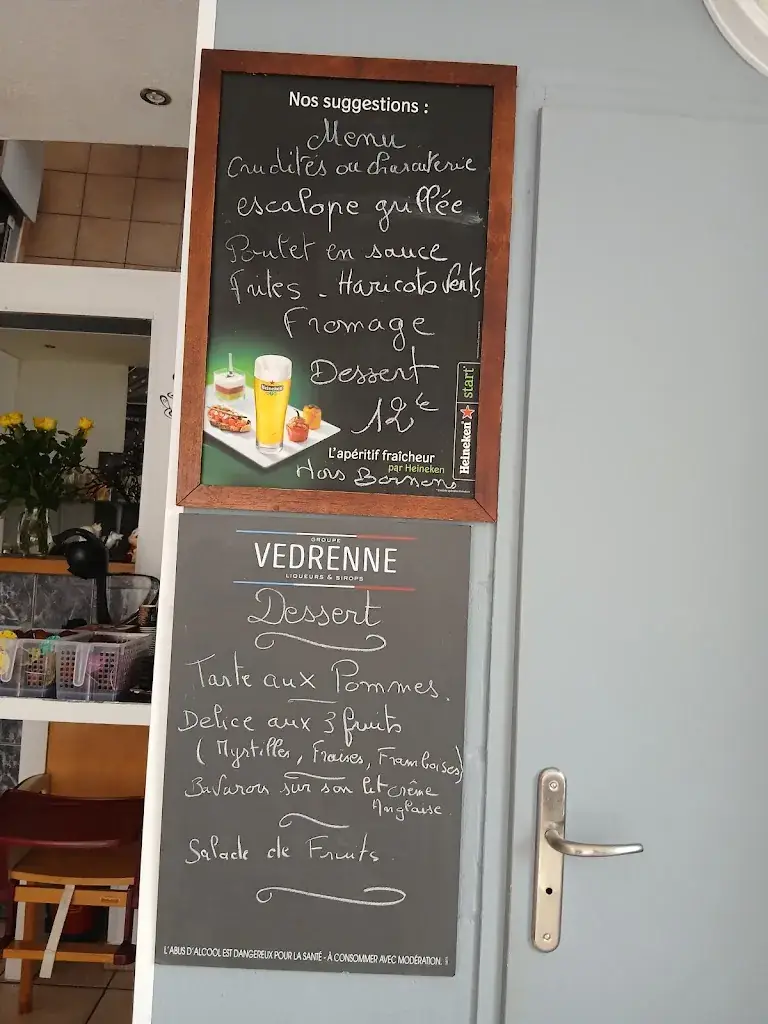 Nos suggestions :
Menu
Crudités ou charcuterie
escalope grillée
Poulet en sauce
Frites - Haricots Verts
Fromage
Dessert
12€
Heineken
start
Heineken
L'apéritif fraîcheur
par Heineken
Hors Boissons
GROUPE
VEDRENNE
LIQUEURS & SIROPS
Dessert
Tarte aux Pommes.
Delice aux 3 fruits
( Myrtilles, Fraises, Framboises)
Bavarois sur son lit crême
Anglaise.
Salade de Fruits.
L'ABUS D'ALCOOL EST DANGEREUX POUR LA SANTÉ - À CONSOMMER AVEC MODÉRATION.